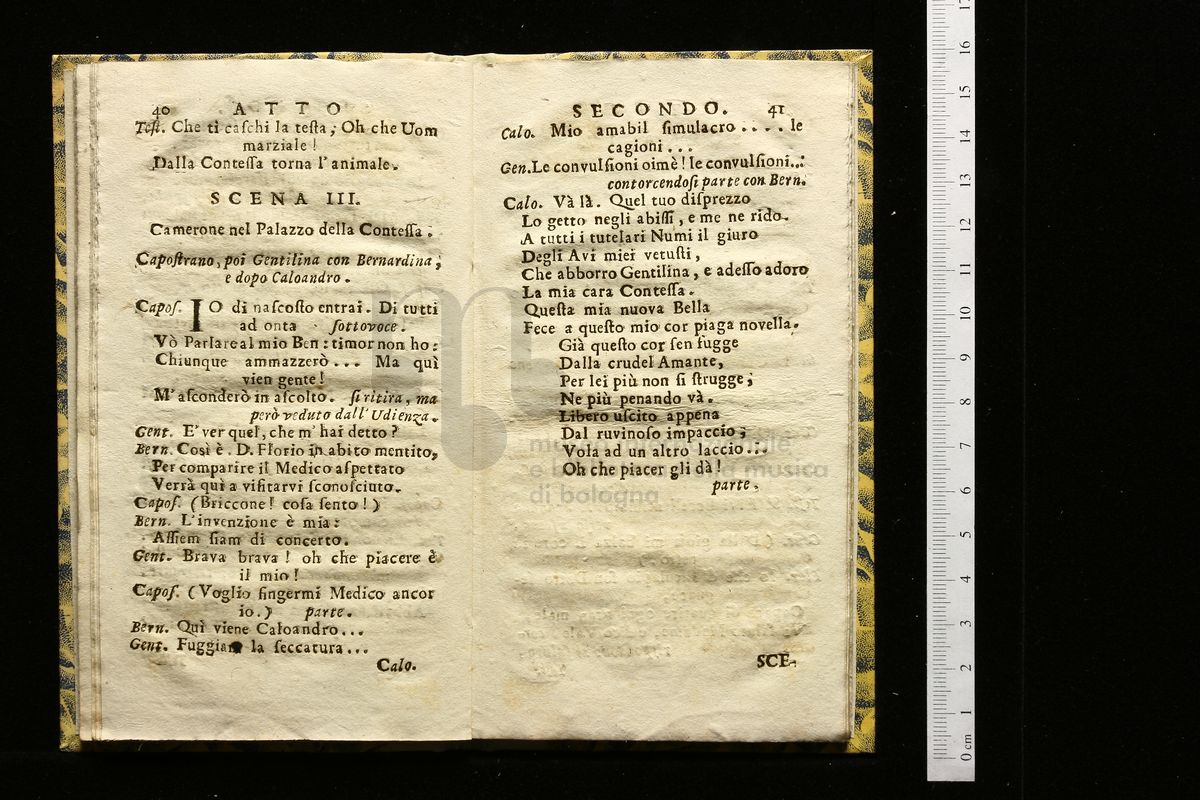 40 ATTO
Test. Che ti caschi la testa; Oh che Uom
marziale!
Dalla Contessa torna l'animale.
SCENA III.
Camerone nel Palazzo della Contessa.
Capostrano, poi Gentilina con Bernardina,
e dopo Caloandro.
Capos. IO di nascosto entrai. Di tutti
ad onta sottovoce.
Vò Parlare al mio Ben: timor non ho:
Chiunque ammazzerò... Ma quì
vien gente!
M'asconderò in ascolto. si ritira, ma
però veduto dall'Udienza.
Gent. E' ver quel, che m'hai detto?
Bern. Così è. D. Florio in abito mentito,
Per comparire il Medico aspettato
Verrà quì a visitarvi sconosciuto.
Capos. (Briccone! cosa sento!)
Bern. L'invenzione è mia:
Assiem siam di concerto.
Gent. Brava brava! oh che piacere è
il mio!
Capos. (Voglio fingermi Medico ancor
io.) parte.
Bern. Quì viene Caloandro...
Gent. Fuggiam la seccatura...
Calo.
SECONDO. 41
Calo. Mio amabil simulacro.... le
cagioni...
Gen. Le convulsioni oimè! le convulsioni...
contorcendosi parte con Bern.
Calo. Và là. Quel tuo disprezzo
Lo getto negli abissi, e me ne rido.
A tutti i tutelari Numi il giuro
Degli Avi miei vetusti,
Che abborro Gentilina, e adesso adoro
La mia cara Contessa.
Questa mia nuova Bella
Fece a questo mio cor piaga novella.
Già questo cor sen fugge
Dalla crudel Amante,
Per lei più non si strugge;
Ne più penando và.
Libero uscito appena
Dal ruvinoso impaccio;
Vola ad un altro laccio...
Oh che piacer gli dà!
parte.
SCE-
museo internazionale
e biblioteca della musica
di bologna
0 cm 1 2 3 4 5 6 7 8 9 10 11 12 13 14 15 16 17